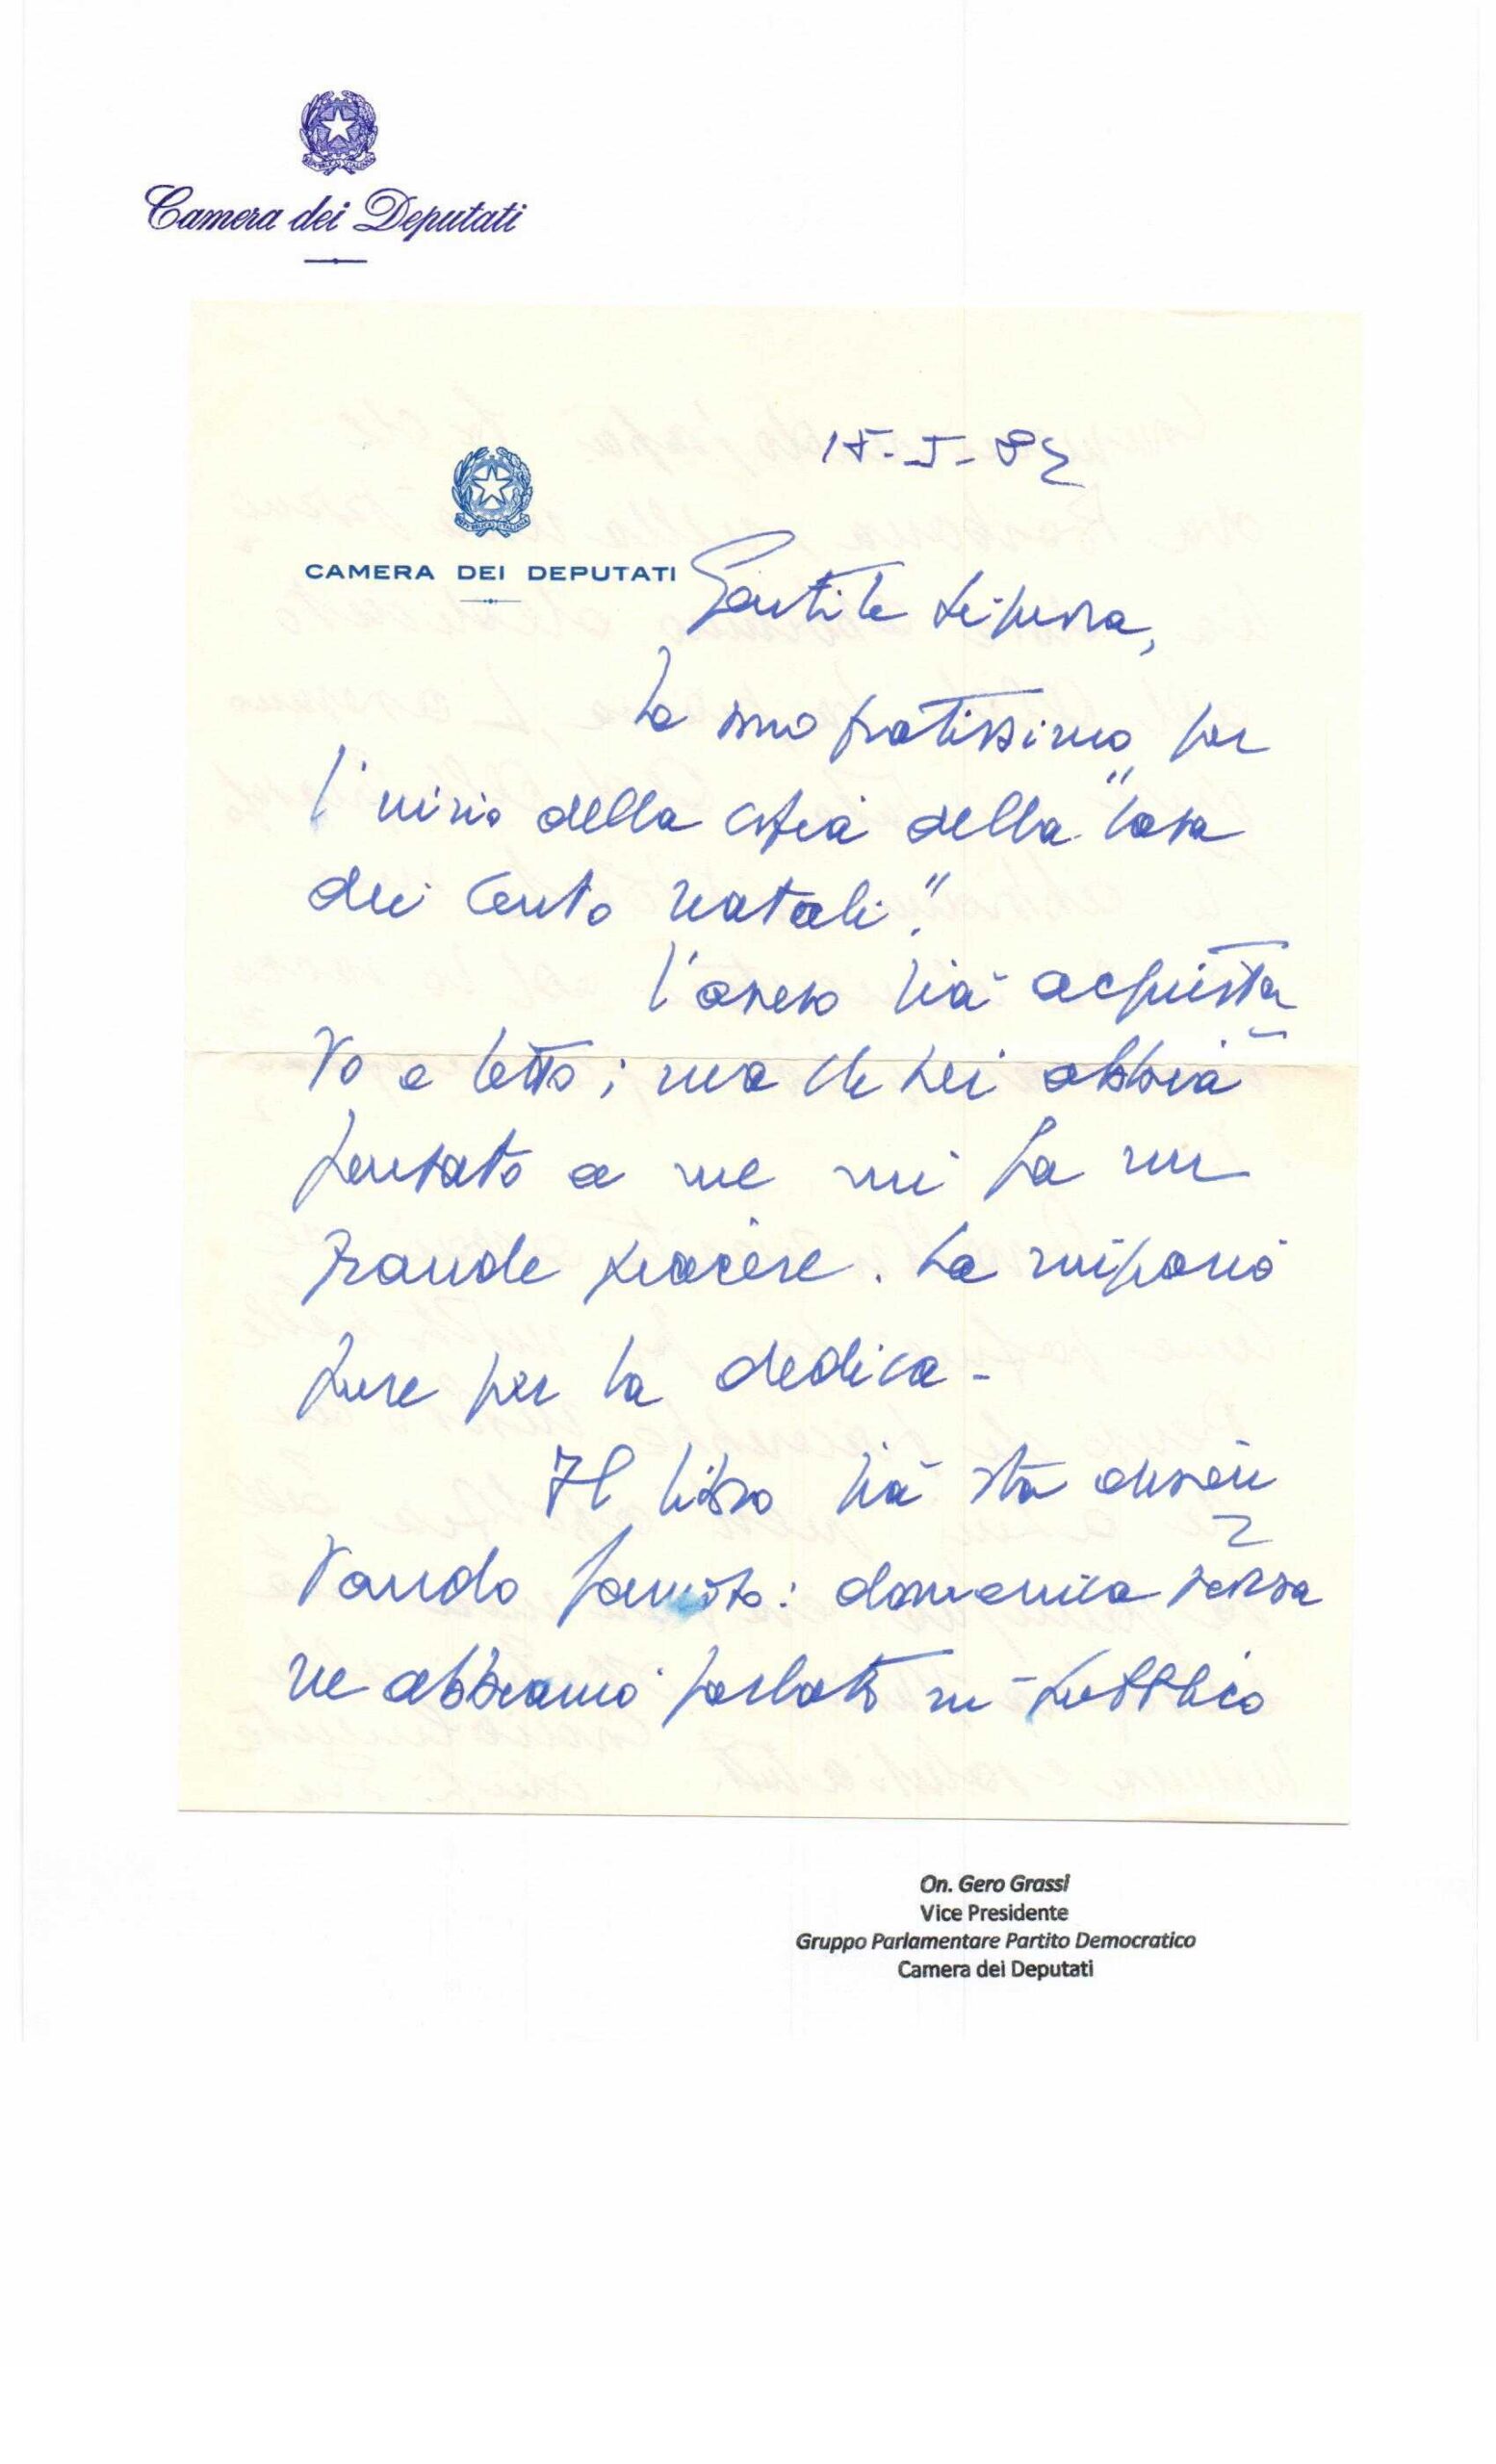 Camera dei Deputati
CAMERA DEI DEPUTATI
Gentile Signora,
Le sono gratissimo per
l'invio della copia della "Casa
dei Cento natali".
L'avevo già acquista
to e letto; ma che Lei abbia
pensato a me mi fa un
grande piacere. La ringrazio
pure per la dedica -
Il libro già sta diven
tando famoso: domenica sera
ne abbiamo parlato in pubblico
On. Gero Grassi
Vice Presidente
Gruppo Parlamentare Partito Democratico
Camera dei Deputati